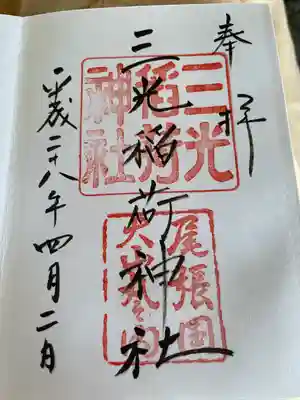 奉拝
三光稲荷神社
平成二十八年四月二日
三光
稲荷
神社
尾張国
犬山